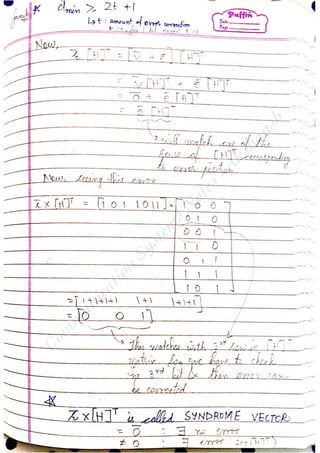 * dmin ≥ 2t + 1
Puffin
Date
Page
Lo t : amount of error correction
Now,
r̄ [H]ᵀ = [v̄ + ē] [H]ᵀ
= v̄ [H]ᵀ + ē [H]ᵀ
= 0̄ + ē [H]ᵀ
= ē [H]ᵀ
will match one of the
of [H]ᵀ corresponding
to error position
Now, seeing this error
r̄ x [H]ᵀ = [1 0 1 1 0 1 1] . 1 0 0
0 1 0
0 0 1
1 1 0
0 1 1
1 1 1
1 0 1
= [1+1+1+1 1+1 1+1+1]
= [0 0 1]
This matches with 3rd row in [H]ᵀ
matrix so, we have to check
the 3rd bit & then error can
be corrected
*
r̄ x [H]ᵀ is called SYNDROME VECTOR
= 0̄ : ∃ no error
≠ 0 : ∃ error see [H]ᵀ)